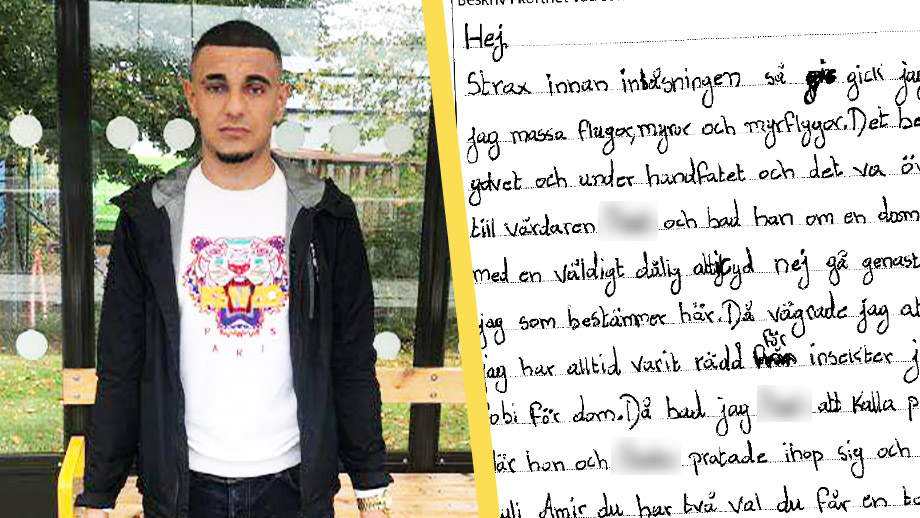 KENZO
PARIS
Beskriv i korthet vad
Hej.
Strax innan inlåsningen så gick jag
jag massa flugor, myror och myrflygor. Det
golvet och under handfatet och det va
till vårdaren och bad han om en
med en väldigt dålig attityd nej gå genast
jag som bestämmer här. Då vägrade jag
jag har alltid varit rädd för insekter
fobi för dom. Då bad jag att Kalla
där hon och pratade ihop sig och
Amir du har två val du får en